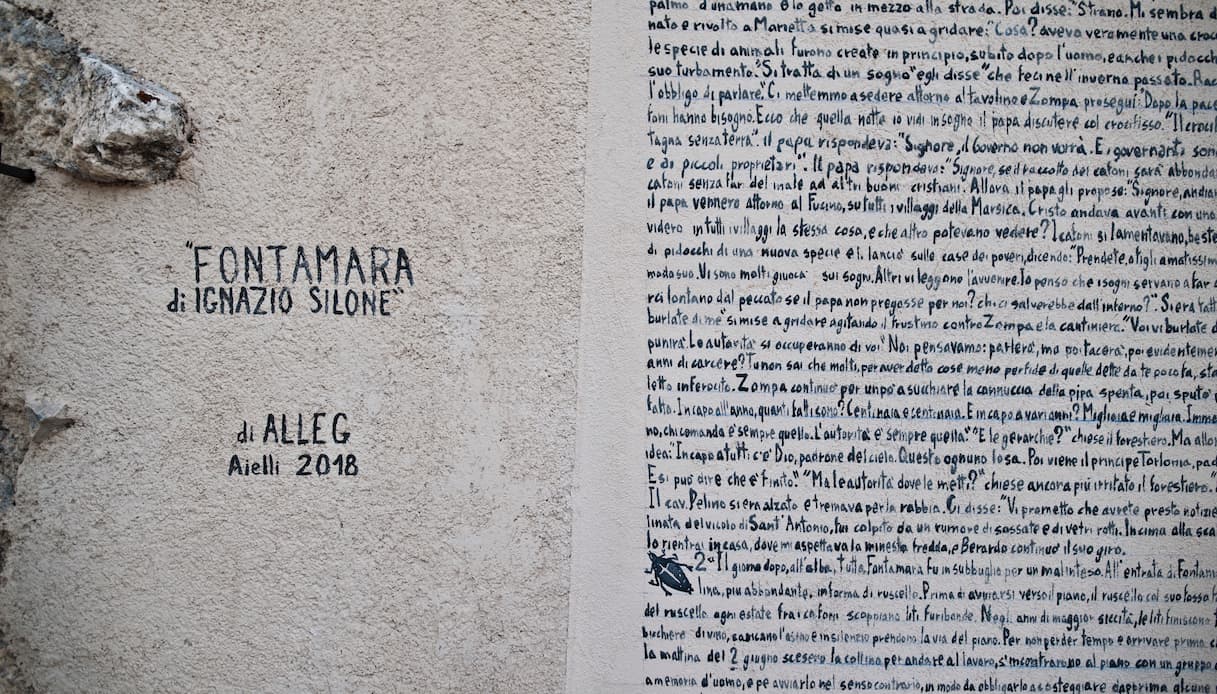 "FONTAMARA
di IGNAZIO SILONE"
di ALLEG
Aielli 2018
palmo d'una mano e lo gettò in mezzo alla strada. Poi disse: "Strano. Mi sembra d
nato e rivolto a Marietta si mise quasi a gridare: "Cosa? aveva veramente una croc
le specie di animali furono create in principio, subito dopo l'uomo, e anche i pidocch
suo turbamento. "Si tratta di un sogno" egli disse "che feci nell'inverno passato. Rac
l'obbligo di parlare." Ci mettemmo a sedere attorno al tavolino e Zompa proseguì: "Dopo la pace
foni hanno bisogno. Ecco che quella notte io vidi in sogno il papa discutere col crocifisso. "Il croci
tagna senza terra". Il papa rispondeva: "Signore, il Governo non vorrà. E i governanti son
e di piccoli proprietari". Il papa rispondeva: "Signore, se il raccolto dei cafoni sarà abbonda
cafoni senza far del male ad altri buoni cristiani. Allora il papa gli propose: "Signore, andiam
il papa vennero attorno al Fucino, su tutti i villaggi della Marsica. Cristo andava avanti con una
videro in tutti i villaggi la stessa cosa, e che altro potevano vedere? I cafoni si lamentavano, beste
di pidocchi di una nuova specie e li lanciò sulle case dei poveri, dicendo: "Prendete, o figli amatissim
modo suo. Vi sono molti giuoca sui sogni. Altri vi leggono l'avvenire. Io penso che i sogni servano a far d
rci lontano dal peccato se il papa non pregasse per noi? chi ci salverebbe dall'inferno?". Si era fatt
burlate di me" si mise a gridare agitando il frustino contro Zompa e la cantiniera. "Voi vi burlate d
punirà. Le autorità si occuperanno di voi" Noi pensavamo: parlerà, ma poi tacerà, poi evidentemen
anni di carcere? Tu non sai che molti, per aver detto cose meno perfide di quelle dette da te poco fa, sta
letto inferocito. Zompa continuò per un po' a succhiare la cannuccia della pipa spenta, poi sputò
fatto. In capo all'anno, quanti fatti sono? Centinaia e centinaia. E in capo a vari anni? Migliaia e migliaia. Imma
no, chi comanda è sempre quello. L'autorità è sempre quella." "E le gerarchie?" chiese il forestiero. Ma allor
idea: "In capo a tutti c'è Dio, padrone del cielo. Questo ognuno lo sa. Poi viene il principe Torlonia, pad
E si può dire che è finito." "Ma le autorità dove le metti?" chiese ancora più irritato il forestiero."
Il cav. Pelino si era alzato e tremava per la rabbia. Ci disse: "Vi prometto che avrete presto notizie
linata del vicolo di Sant'Antonio, fui colpito da un rumore di sassate e di vetri rotti. In cima alla sca
Io rientrai in casa, dove mi aspettava la minestra fredda, e Berardo continuò il suo giro.
2 "Il giorno dopo, all'alba, tutta Fontamara fu in subbuglio per un malinteso. All'entrata di Fontam
lina, più abbondante, in forma di ruscello. Prima di avviarsi verso il piano, il ruscello col suo fosso
del ruscello ogni estate fra i cafoni scoppiano liti furibonde. Negli anni di maggior siccità, le liti finiscono
bicchiere di vino, caricano l'asino e in silenzio prendono la via del piano. Per non perder tempo e arrivare prima
la mattina del 2 giugno scesero la collina per andare al lavoro, s'incontrarono al piano con un gruppo
a memoria d'uomo, e pe avviarlo nel senso contrario, in modo da obbligarlo a costeggiare dapprima alcune